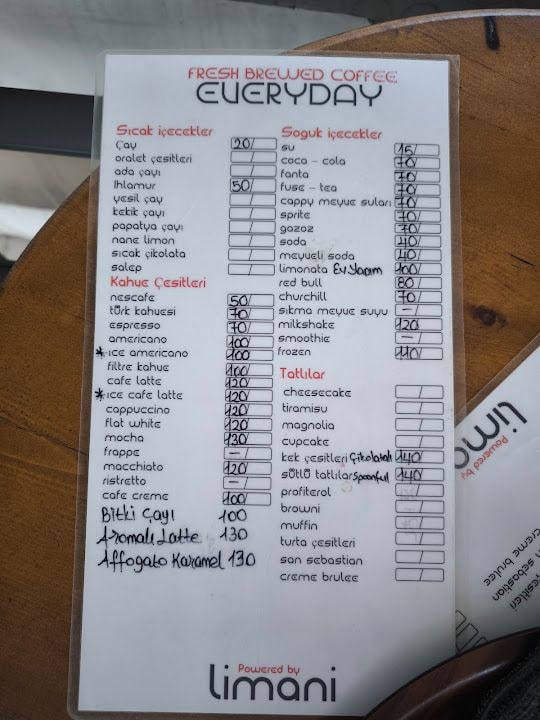 FRESH BREWED COFFEE
EVERYDAY
Sıcak içecekler
çay 20/
oralet çesitleri /
ada çayı /
Ihlamur 50/
yesil çay /
kekik çayı /
papatya çayı /
nane limon /
sıcak çikolata /
salep /
Kahve Çesitleri
nescafe 50/
türk kahvesi 70/
espresso 70/
americano 100/
* ıce americano 100/
filtre kahve 100/
cafe latte 120/
* ıce cafe latte 120/
cappuccino 120/
flat white 120/
mocha 130/
frappe —/
macchiato 120/
ristretto —/
cafe creme 100/
Bitki Çayı 100
Aromalı Latte 130
Affogato Karamel 130
Soguk içecekler
su 15/
coca - cola 70/
fanta 70/
fuse - tea 70/
cappy meyve suları 70/
sprite 70/
gazoz 70/
soda 40/
meyveli soda 40/
limonata Ev Yapım 100/
red bull 80/
churchill 70/
sıkma meyve suyu —/
milkshake 120/
smoothie —/
frozen 110/
Tatlılar
cheesecake /
tiramisu /
magnolia /
cupcake /
kek çesitleri Çikolatalı 140/
sütlü tatlılar Spoonful 140/
profiterol /
browni /
muffin /
turta çesitleri /
san sebastian /
creme brulee /
Powered by
limani
limo
Powered by
creme brulee
n sebastian
çesitleri